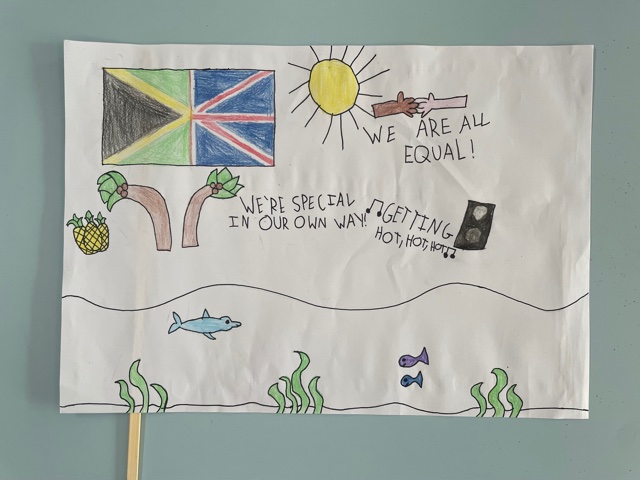 WE ARE ALL
EQUAL!
WE'RE SPECIAL
IN OUR OWN WAY!
GETTING
HOT, HOT, HOT